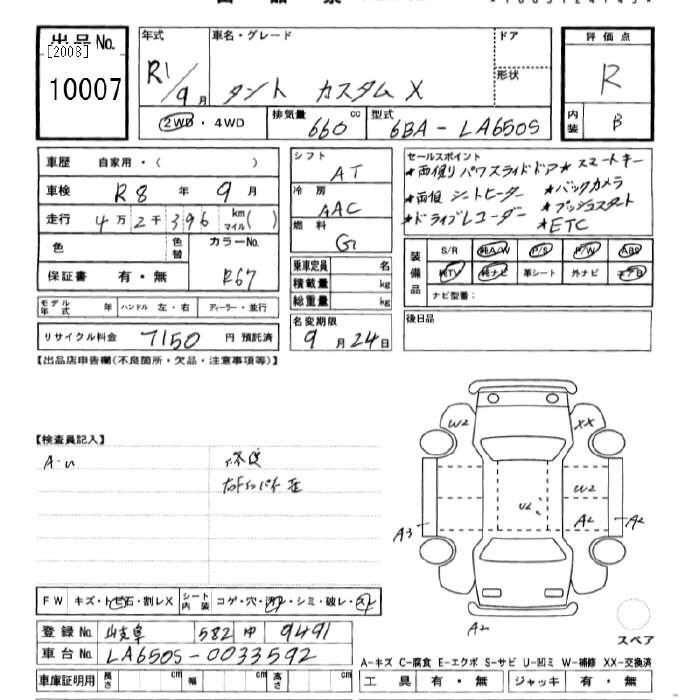 出品No.
[2008]
10007
年式
R1/9月
車名・グレード
タント カスタム X
ドア
形状
評価点
R
内装
B
2WD・4WD
排気量 660 cc
型式 6BA-LA650S
車歴 自家用・( )
車検 R8年9月
走行 4万2千396 km マイル( )
色
色替
カラーNo.
R67
保証書 有・無
モデル年式 年 ハンドル 左・右 ディーラー・並行
リサイクル料金 7150 円 預託済
シフト
AT
冷房
AAC
燃料
G
乗車定員 名
積載量 kg
総重量 kg
名変期限
9月24日
セールスポイント
*両側パワスライドドア*スマートキー
*両側シートヒーター *バックカメラ
*ドライブレコーダー *プッシュスタート
*ETC
装備品
S/R 純A/W P/S P/W ABS
純TV 純ナビ 革シート 外ナビ エアB
ナビ型番:
後日品
【出品店申告欄(不良箇所・欠品・注意事項等)】
【検査員記入】
W2
XX
W2
U2
A2
A3
A2
A2
スペア
FW キズ・トビ石・割レX シート内装 コゲ・穴・汚レ・シミ・破レ・スレ
登録No. 岐阜 582 9491
車台No. LA650S-0033592
車庫証明用 長さ cm 幅 cm 高さ cm
A-キズ C-腐食 E-エクボ S-サビ U-凹ミ W-補修 XX-交換済
工具 有・無 ジャッキ 有・無